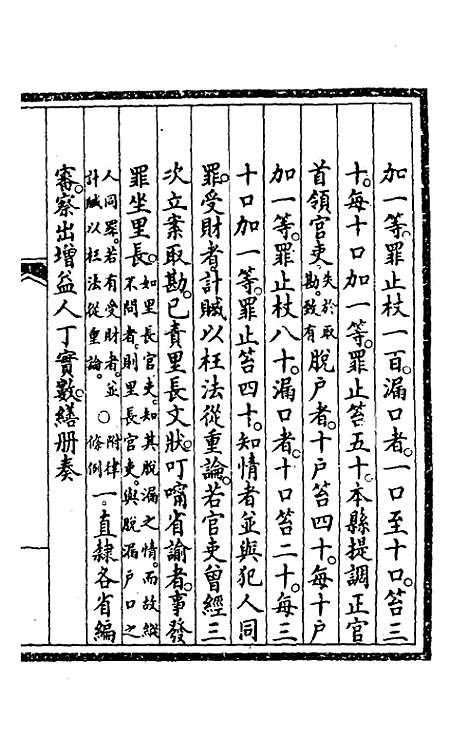 加一等。罪止杖一百。漏口者。一口至十口。笞三
十。每十口加一等。罪止笞五十。本縣提調正官
首領官吏失於取勘。致有脫戶者。十戶笞四十。每十戶
加一等。罪止杖八十。漏口者。十口笞二十。每三
十口加一等。罪止笞四十。知情者並與犯人同
罪。受財者。計贓以枉法從重論。若官吏曾經三
次立案取勘。已責里長文狀。叮嚀省諭者。事發
罪坐里長。如里長官吏。知其脫漏之情。而故縱不問者。則里長官吏。與脫漏戶口之
人同罪。若有受財者。並計贓以枉法從重論。○附律條例一。直隸各省編
審察出增益人丁實數。繕册奏